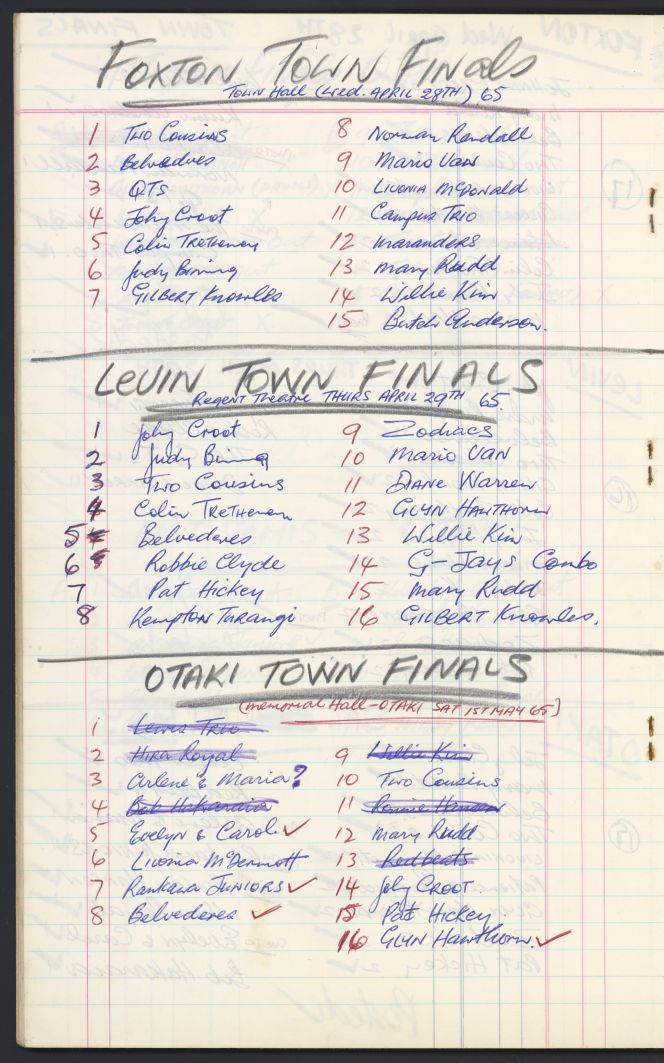 FOXTON TOWN FINALS
TOWN Hall (Wed. APRIL 28TH) 65
1 Two Cousins
2 Belvedres
3 QTS
4 Johy Croot
5 Colin Tretheney
6 Judy Birring
7 GILBERT Knowles
8 Norman Rendall
9 Mario Van
10 LIVONIA McDonald
11 Campus TRIO
12 maranders
13 mary Rudd
14 Willie Kim
15 Butch Anderson.
LEVIN TOWN FINALS
Regent Theatre THURS APRIL 29TH 65.
1 Johy Croot
2 Judy
3 Two Cousins
4 Colin Tretheney
5 Belvederes
6 Robbie Clyde
7 Pat Hickey
8 Kempton Tarangi
9 Zodiacs
10 Mario VAN
11 DIANE Warren
12 GLYN HAWTHORN
13 Willie Kim
14 G-Jays Combo
15 Mary Rudd
16 GILBERT Knowles.
OTAKI TOWN FINALS
(memorial Hall-OTAKI SAT 1ST MAY 65)
1 Lewis Trio
2 Hira Royal
3 Arlene & Maria?
4 Bob
5 Evelyn & Carol. ✓
6 Livonia McDermott
7 Raukawa JUNIORS ✓
8 Belvederes ✓
9 Willie Kim
10 Two Cousins
11
12 Mary Rudd
13 Redbeats
14 Johy CROOT
15 Pat Hickey.
16 GLYN Hawthorn. ✓